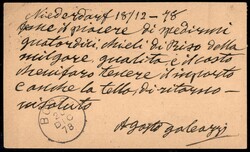 Niederdorf 18/12 - 78
fare il piacere di spedirmi
quatordici chieli di Riso della
milgore qualita e il costo
tenere il importo
e anche la tella di ritorno
Agosto galeazzi
78